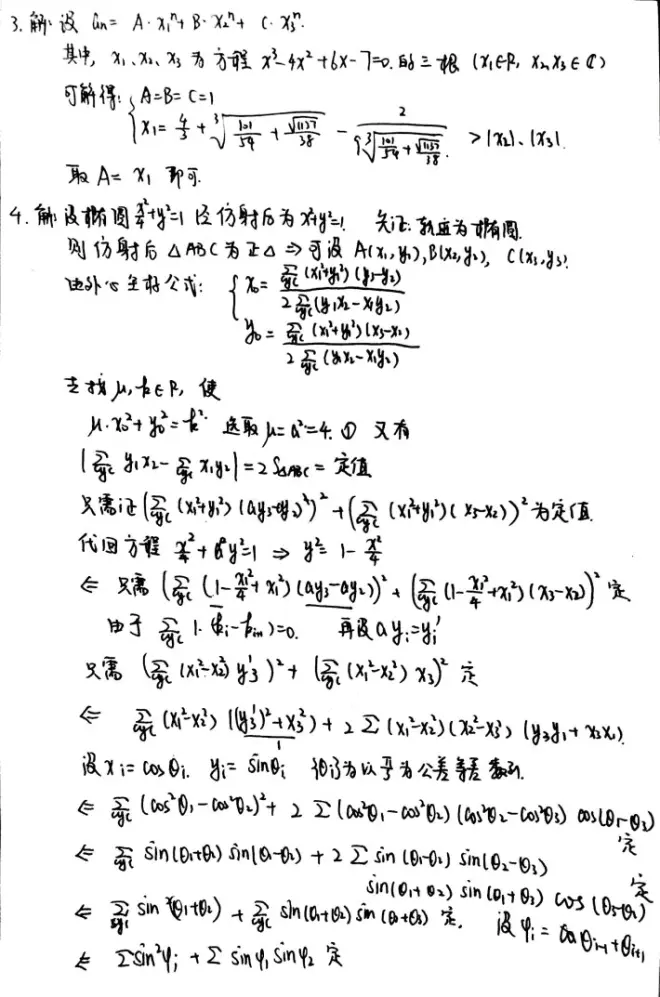 3. 解: 设 an= A·x₁ⁿ+ B·x₂ⁿ+ C·x₃ⁿ.
其中, x₁、x₂、x₃ 为方程 x³-4x²+6x-7=0. 的三根 (x₁∈R, x₂,x₃∈C)
可解得: { A=B=C=1
x₁= 4/3 + ∛(101/54 + √1137/38) - 2/(9∛(101/54+√1137/38)) > |x₂|、|x₃|.
取 A= x₁ 即可.
4. 解: 设椭圆 x²/4+y²=1 经仿射后为 x²+y²=1. 先证: 轨迹为椭圆.
则仿射后 △ABC 为正△ ⇒ 可设 A(x₁,y₁), B(x₂,y₂), C(x₃,y₃).
由外心坐标公式: { x₀= Σcyc (x₁²+y₁²)(y₃-y₂) / 2Σcyc(y₁x₂-x₁y₂)
y₀= Σcyc (x₁²+y₁²)(x₃-x₂) / 2Σcyc(y₁x₂-x₁y₂)
去找 μ, k∈R, 使
μ·x₀²+y₀²=k². 选取 μ=a²=4. ① 又有
|Σcyc y₁x₂-Σcyc x₁y₂|=2S△ABC=定值
只需证 (Σcyc (x₁²+y₁²)(ay₃-ay₂))²+(Σcyc (x₁²+y₁²)(x₃-x₂))² 为定值.
代回方程 x²/4+y²=1 ⇒ y²=1-x²/4
⇐ 只需 (Σcyc (1-x₁²/4+x₁²)(ay₃-ay₂))²+(Σcyc (1-x₁²/4+x₁²)(x₃-x₂))² 定
由于 Σcyc 1·(ki-ki+1)=0. 再设 ayi=yi'
只需 (Σcyc (x₁²-x₂²)y₃')²+(Σcyc (x₁²-x₂²)x₃)² 定
⇐ Σcyc (x₁²-x₂²)((y₃')²+x₃²)+2Σ(x₁²-x₂²)(x₂²-x₃²)(y₃y₁+x₃x₁).
1
设 xi=cosθi. yi=sinθi {θi}为以 为公差等差数列.
⇐ Σcyc (cos²θ₁-cos²θ₂)²+2Σ(cos²θ₁-cos²θ₂)(cos²θ₂-cos²θ₃) cos(θ₁-θ₃) 定
⇐ Σcyc sin(θ₁+θ₂) sin(θ₁-θ₂)+2Σ sin(θ₁-θ₂) sin(θ₂-θ₃)
sin(θ₁+θ₂) sin(θ₂+θ₃) cos(θ₃-θ₁) 定
⇐ Σcyc sin²(θ₁+θ₂)+Σcyc sin(θ₁+θ₂) sin(θ₂+θ₃) 定. 设 φi=θi-1+θi+1
⇐ Σsin²φi+Σ sinφ₁ sinφ₂ 定